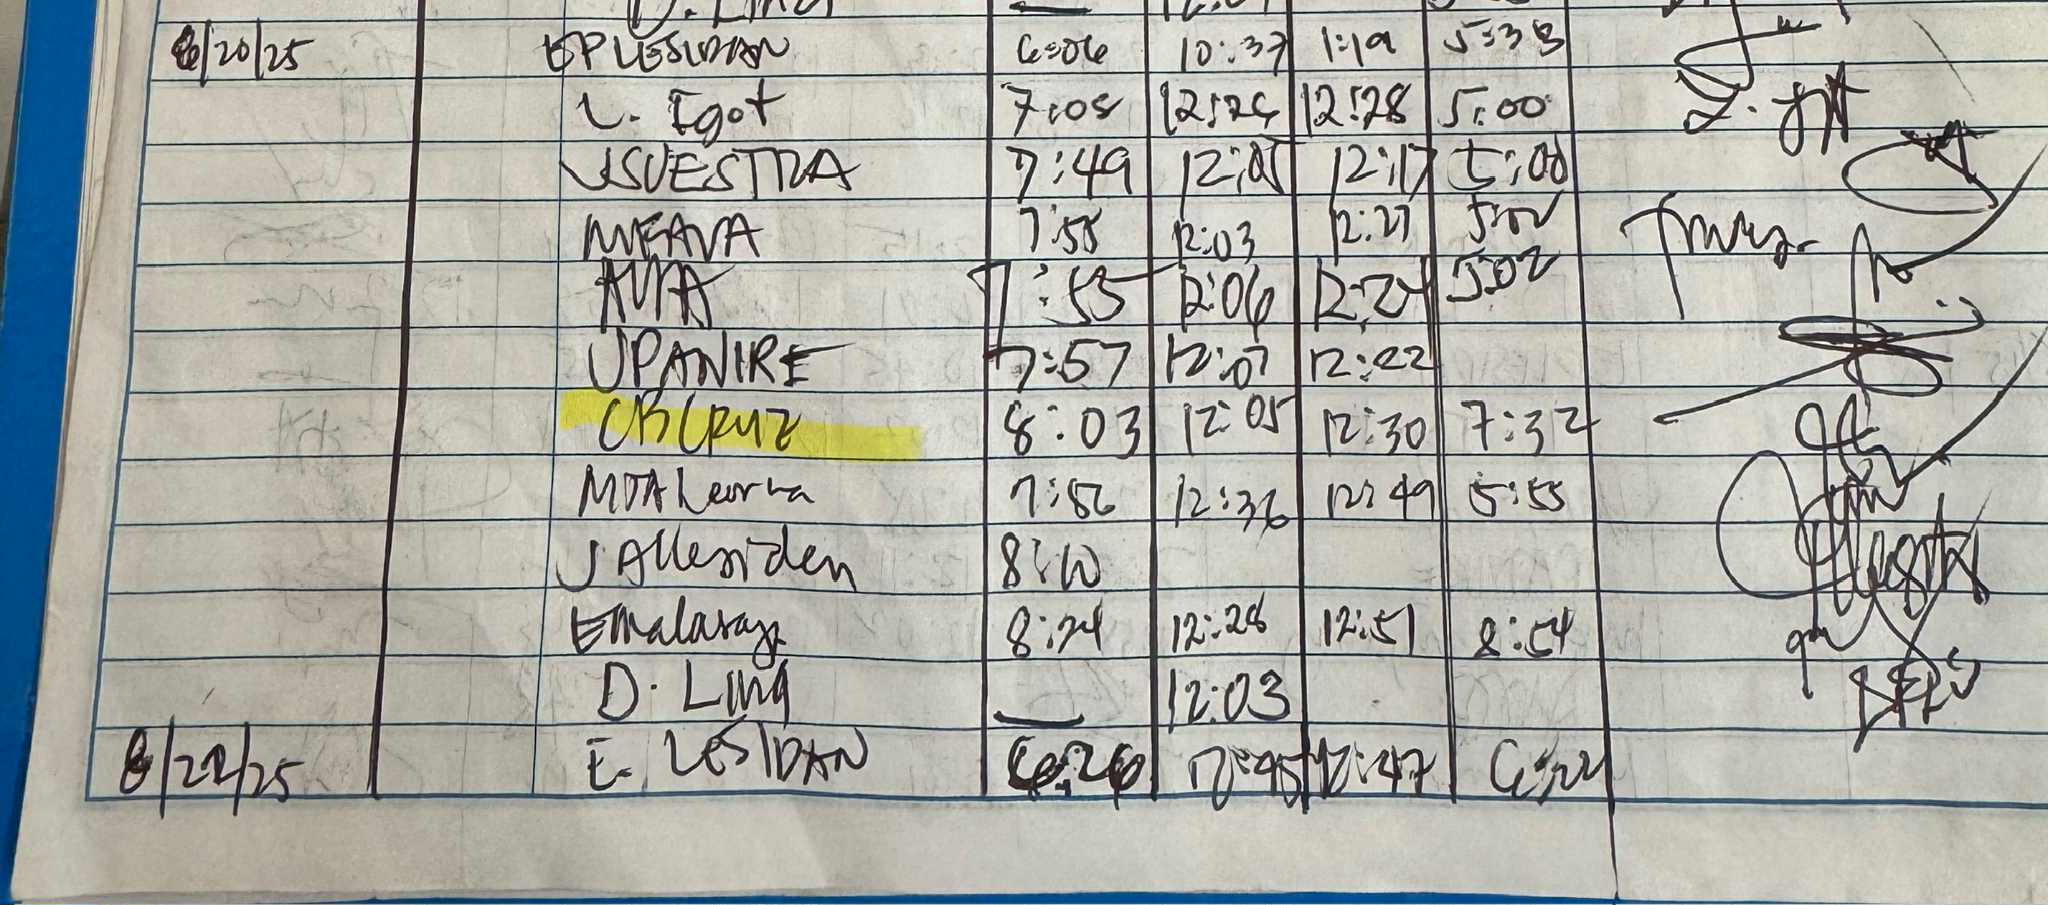 D. LING 12:07
8/20/25 EPLESIDAN 6:06 10:37 1:19 5:33
L. Egot 7:08 12:26 12:28 5:00
JSVESTRA 7:49 12:05 12:17 5:00
7:55 12:03 12:27 5:02
7:55 12:06 12:24 5:02
JPANIRE 7:57 12:07 12:22
CBCRUZ 8:03 12:05 12:30 7:32
7:56 12:36 12:49 5:55
8:10
Emalaray 8:24 12:28 12:51 8:54
D. LING 12:03
8/22/25 E. LESIDAN 6:26 12:45 12:47 6:22